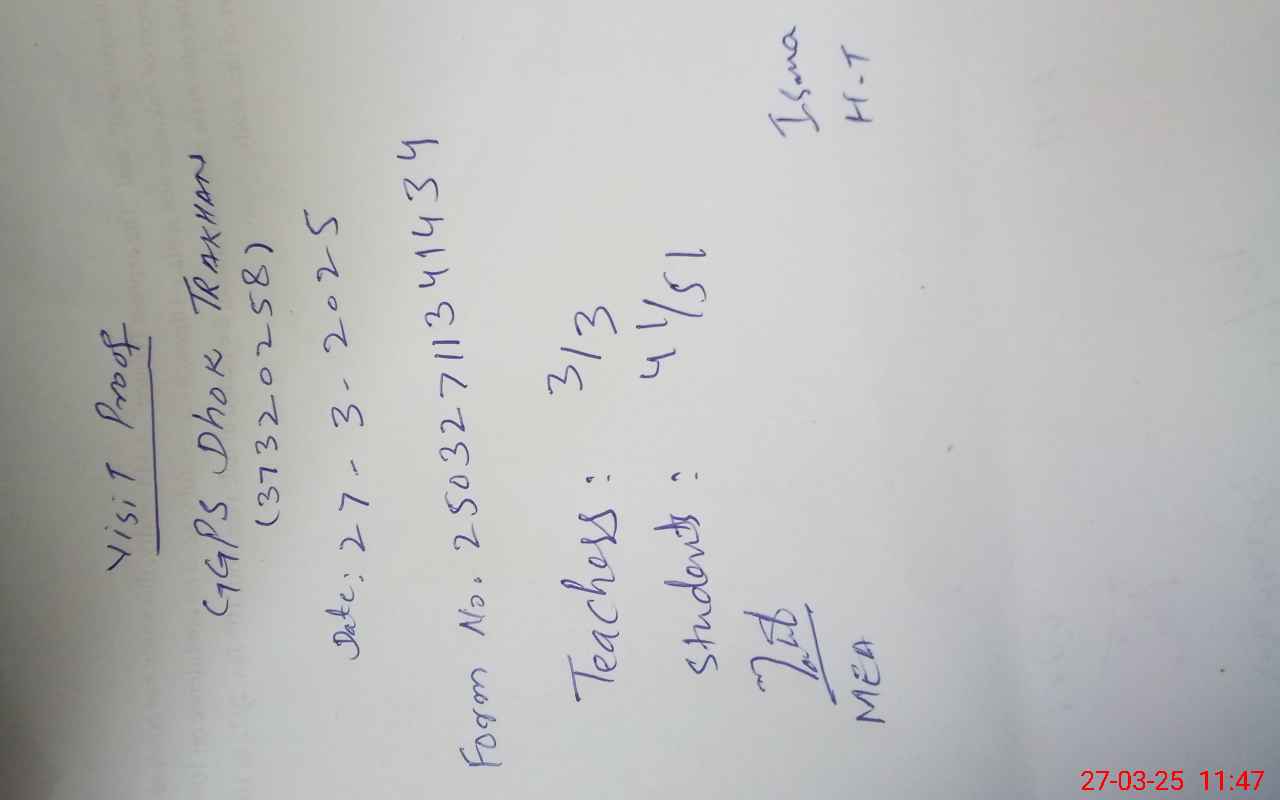 Visit Proof
GGPS Dhok TRAKHAN
(37320258)
Date: 27-3-2025
Form No. 25032711341434
Teachers: 3/3
Students: 41/51
Isma
MEA H-T
27-03-25 11:47